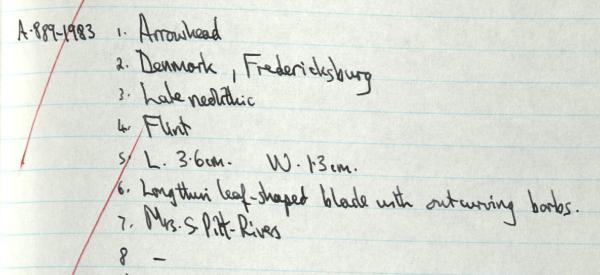 A.889-1983 1. Arrowhead
2. Denmark, Fredericksburg
3. Late neolithic
4. Flint
5. L. 3.6cm. W. 1.3cm.
6. Long thin leaf-shaped blade with outcurving barbs.
7. Mrs. S Pitt-Rivers
8 -